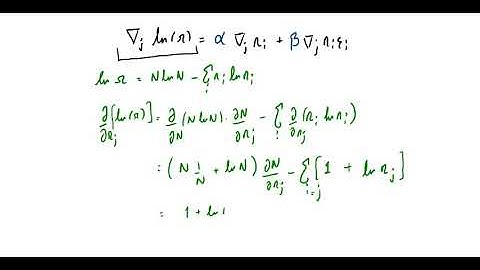 ∇ⱼ ln(Ω) = α ∇ⱼ nᵢ + β ∇ⱼ nᵢ εᵢ
ln Ω = N ln N − Σᵢ nᵢ ln nᵢ
∂/∂nⱼ [ln(Ω)] = ∂/∂N (N ln N) · ∂N/∂nⱼ − Σᵢ ∂/∂nⱼ (nᵢ ln nᵢ)
= (N 1/N + ln N) ∂N/∂nⱼ − Σᵢ₌ⱼ [1 + ln nⱼ]
= 1 + ln